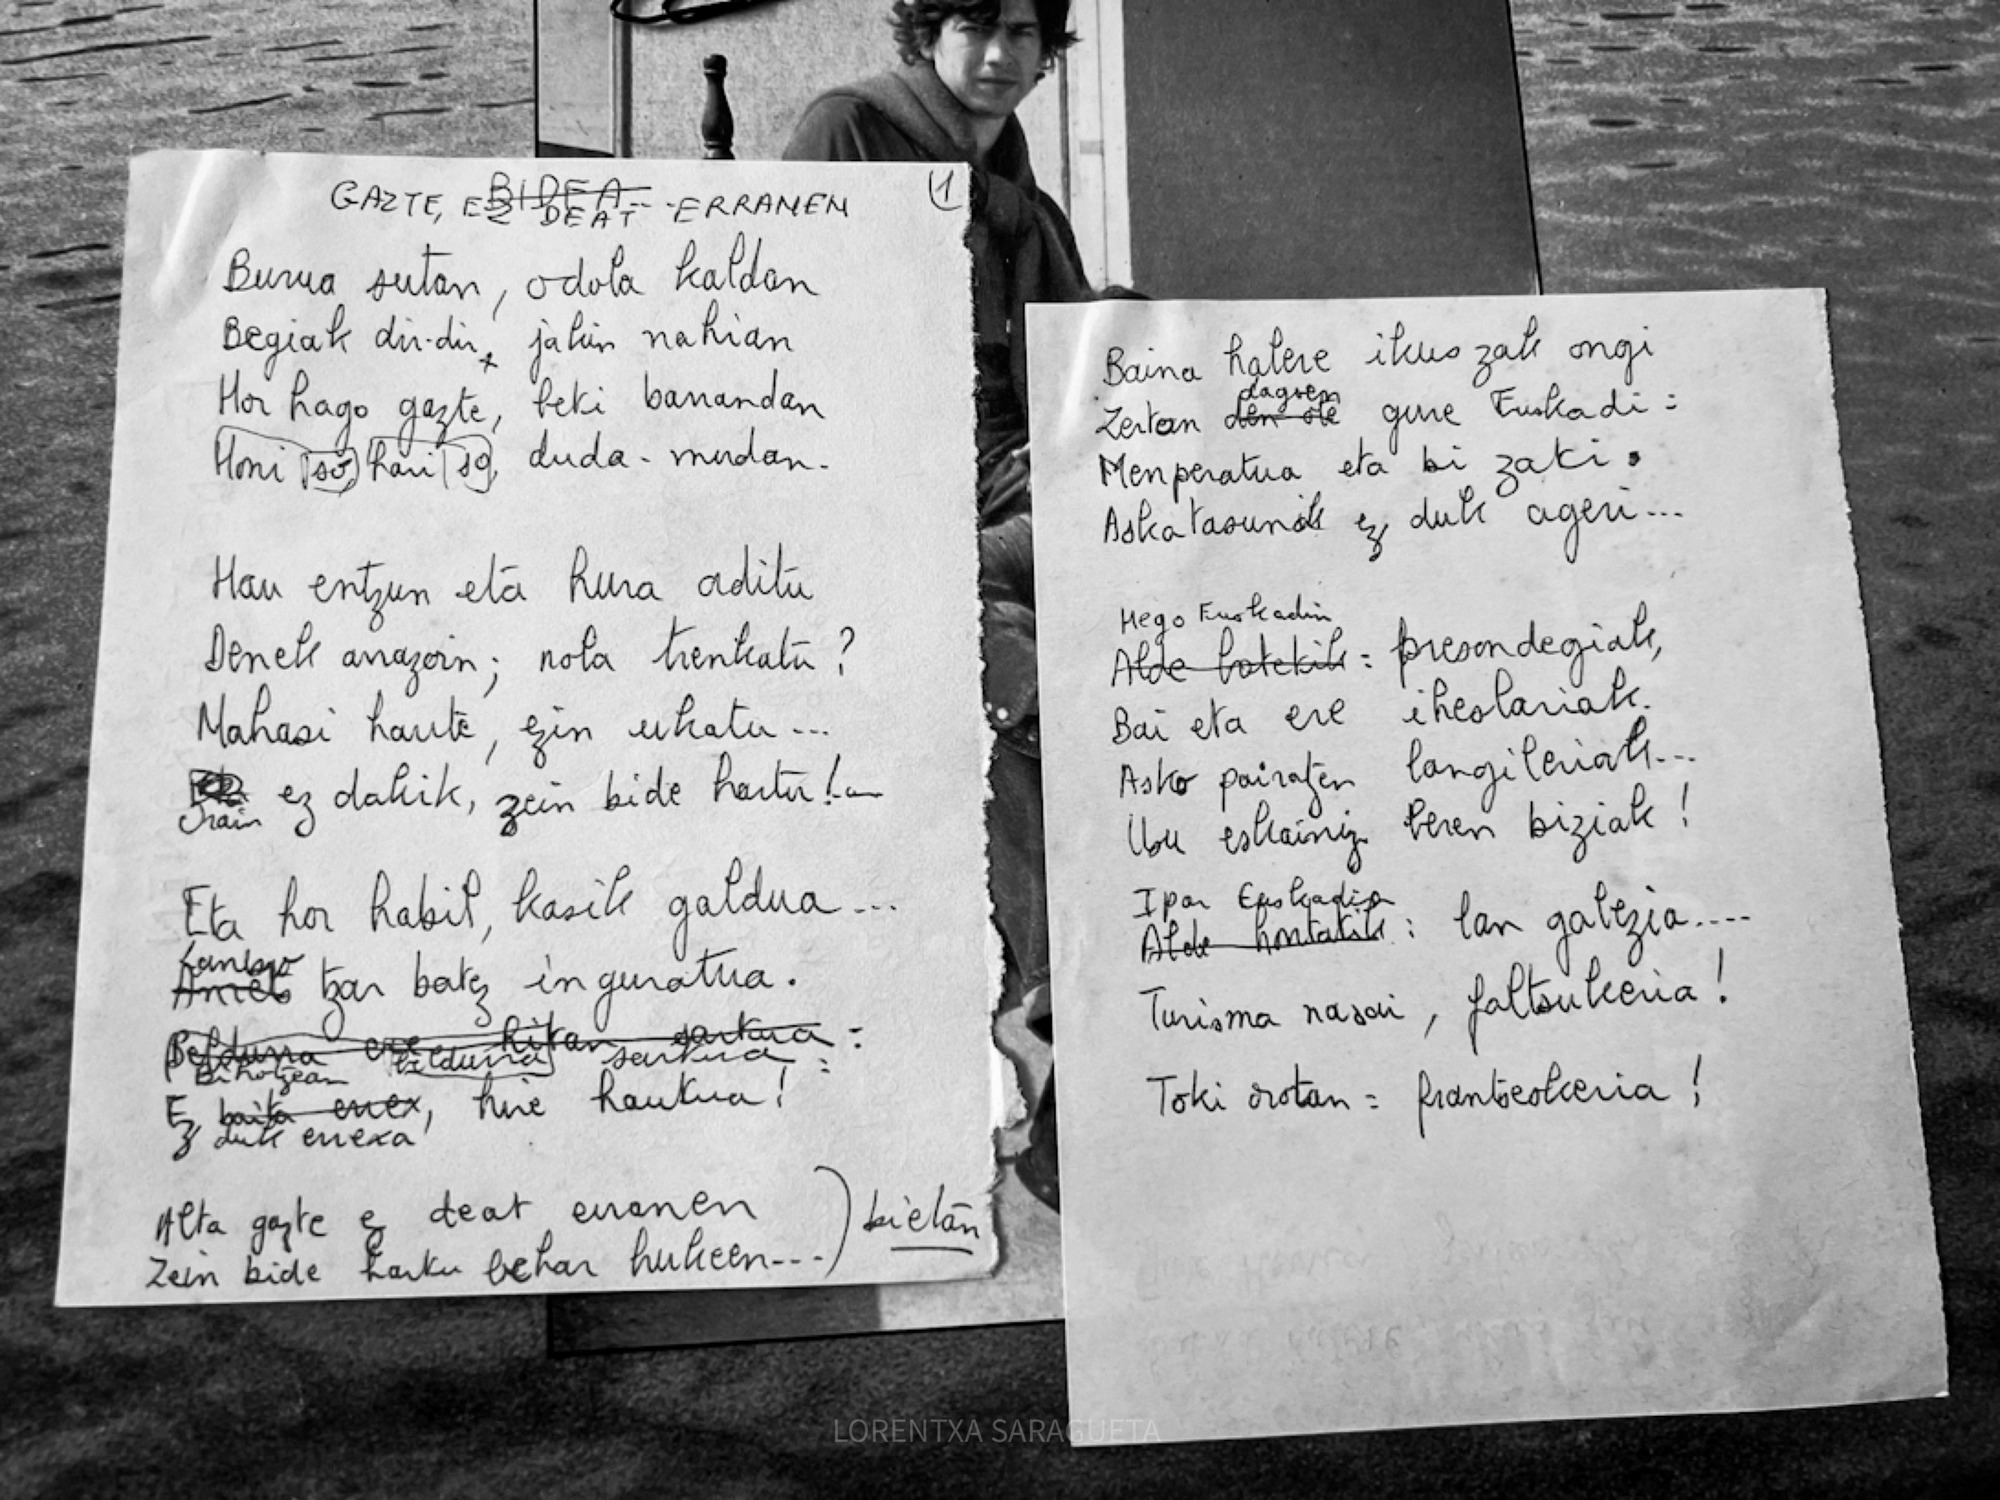 BIDEA...
GAZTE, EZ DEAT ERRANEN
1
Burua sutan, odola kaldan
Begiak dir-dir, jakin nahian
Hor hago gazte, beki barrandan
Honi so, hari so, duda-mudan.
Hau entzun eta hura aditu
Denek arrazoin; nola trenkatu?
Mahasi haute, ezin ukatu...
Orain ez dakik, zein bide hartu!..
Eta hor habil, kasik galdua...
Laneso
Amets tzar batez inguratua.
Beldurra ere hitan sartua:
Bihotzean beldurra sartua:
Ez baita errex, hire hautua!
Ez duk errexa
Alta gazte ez deat erranen
Zein bide hartu behar hukeen...
bietan
Baina halere ikus zak ongi
dagoen
Zertan den ote gure Euskadi:
Menperatua eta bi zati.
Askatasunik ez duk ageri...
Hego Euskadin
Alde batetik: presondegiak,
Bai eta ere iheslariak.
Asko pairatzen langileriak...
Usu eskainiz beren biziak!
Ipar Euskadin
Alde hontatik: lan galezia....
Turisma nasai, faltsukeria!
Toki orotan: frantseskeria!
LORENTXA SARAGUETA